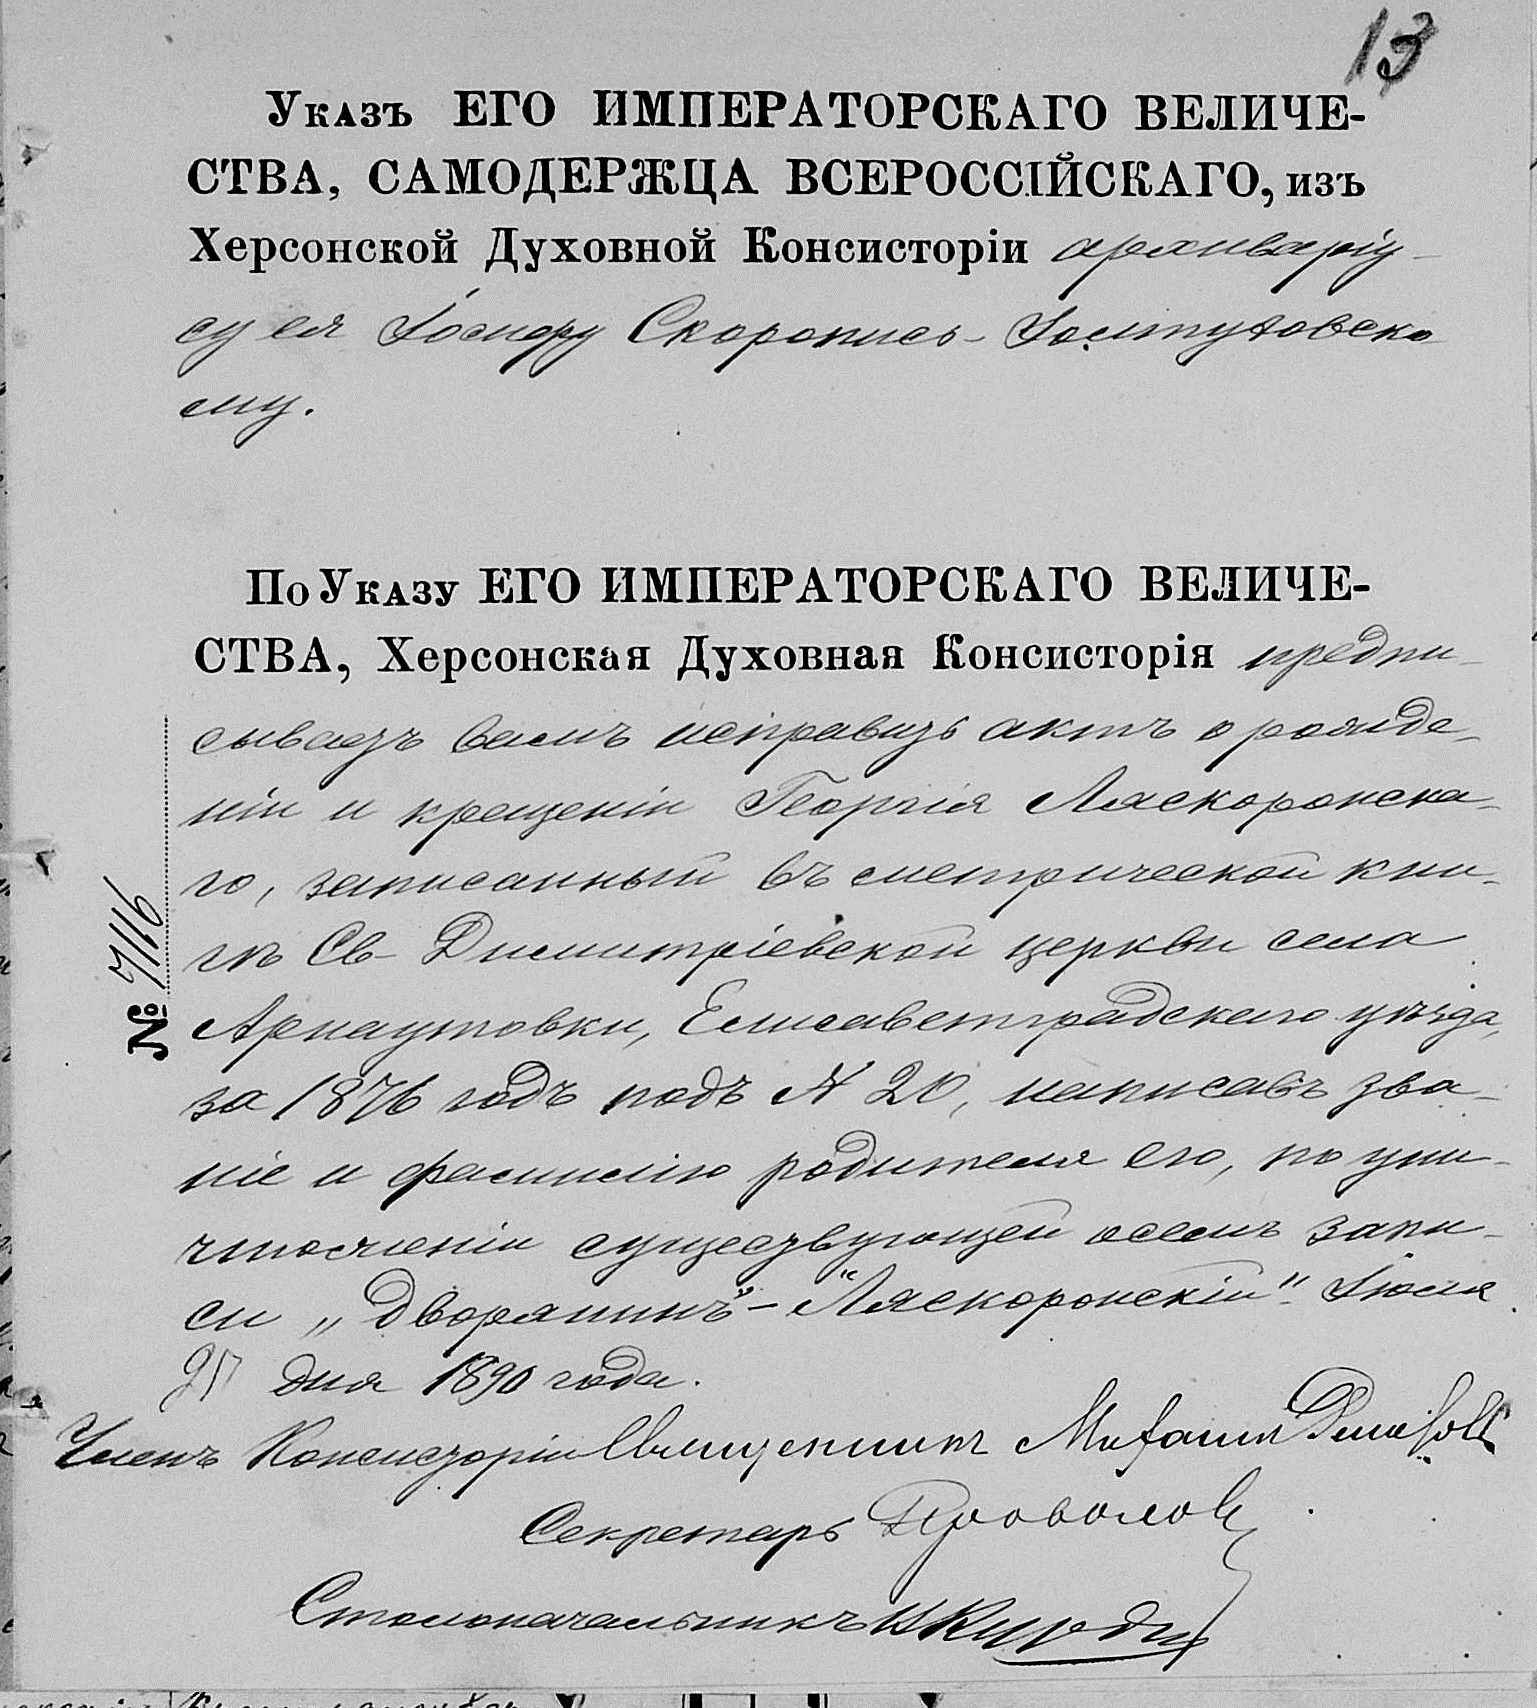 13
Указъ ЕГО ИМПЕРАТОРСКАГО ВЕЛИЧЕ-
СТВА, САМОДЕРЖЦА ВСЕРОССІЙСКАГО, изъ
Херсонской Духовной Консисторіи архиварiу-
су ея Іосифу Скоропись-
му.
По Указу ЕГО ИМПЕРАТОРСКАГО ВЕЛИЧЕ-
СТВА, Херсонская Духовная Консисторія предпи-
сываетъ вамъ исправить актъ о рожде-
ніи и крещеніи Георгія Ляскоронска-
го, записанный въ метрической кни-
гѣ Св- Димитріевской церкви села
Арнаутовки, Елисаветградскаго уѣзда,
за 1876 годъ подъ № 20, написавъ зва-
ніе и фамилію родителя его, по уни-
чтоженіи существующей о семъ запи-
си „Дворянинъ"- "Ляскоронскій". Іюля
дня 1890 года.
№ 7116
Членъ Консисторіи Священникъ Михаилъ
Секретарь
Столоначальникъ